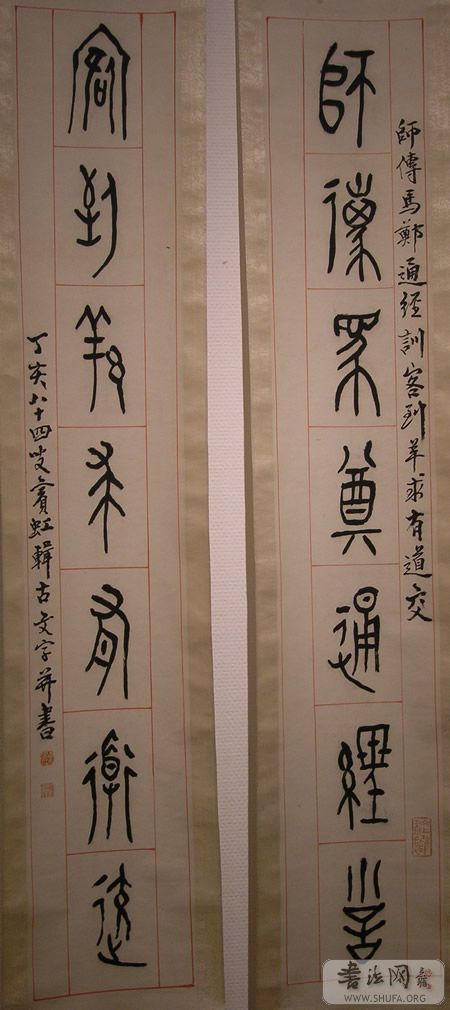 師傳馬鄭通經訓客到羊求有道交
師傳馬鄭通經訓
客到羊求有道交
丁亥八十四叟賓虹輯古文字并書
書法网
WWW.SHUFA.ORG